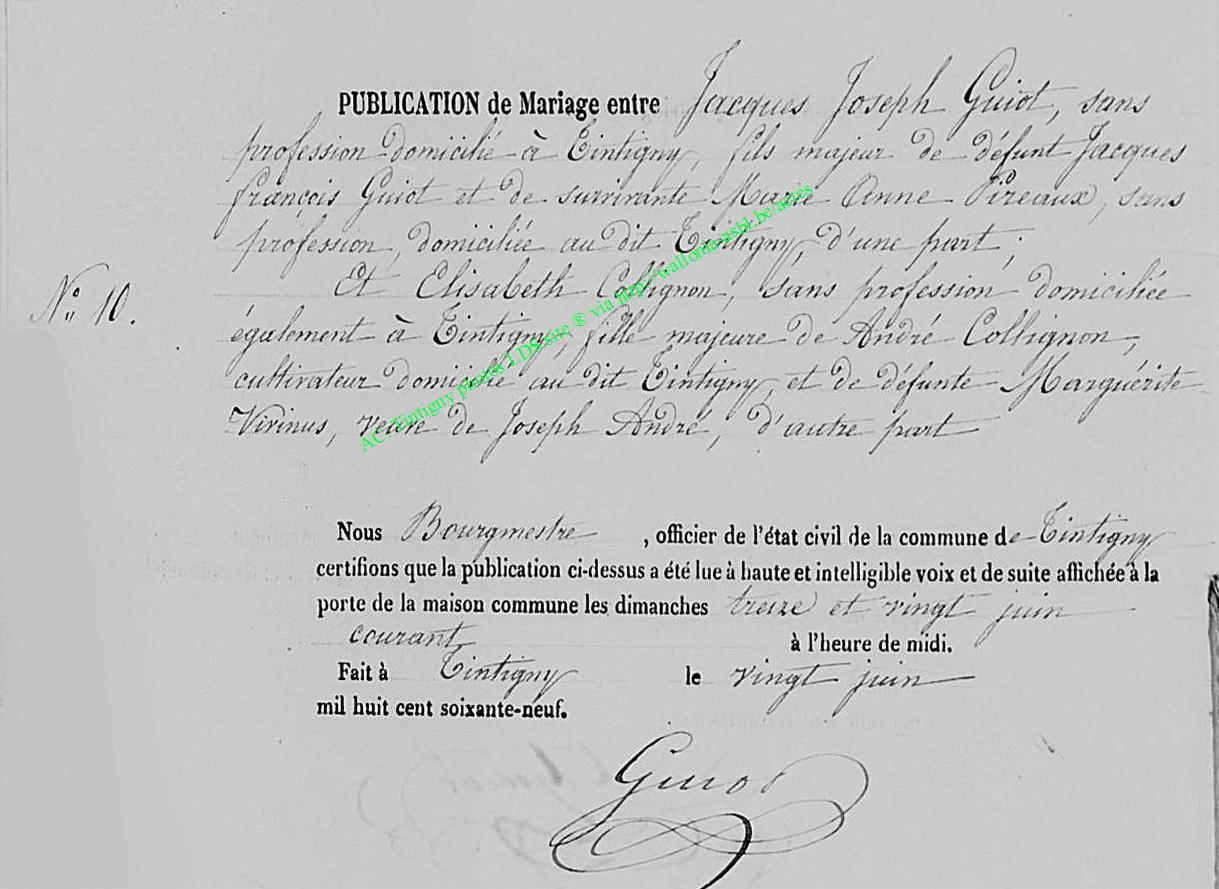 PUBLICATION de Mariage entre Jacques Joseph Guiot, sans
profession domicilié à Tintigny, fils majeur de défunt Jacques
françois Guiot et de survivante Marie Anne Pireaux, sans
profession, domiciliée au dit Tintigny, d'une part ;
Et Elisabeth Collignon, sans profession domiciliée
N° 10.
également à Tintigny, fille majeure de André Collignon,
cultivateur domicilié au dit Tintigny, et de défunte Marguérite
Virinus, veuve de Joseph André, d'autre part
AC - Tintigny photos LDS site ® via http://wallonia-asbl.be/actes
Nous Bourgmestre, officier de l'état civil de la commune de Tintigny
certifions que la publication ci-dessus a été lue à haute et intelligible voix et de suite affichée à la
porte de la maison commune les dimanches treize et vingt juin
courant à l'heure de midi.
Fait à Tintigny le vingt juin
mil huit cent soixante-neuf.
Guiot